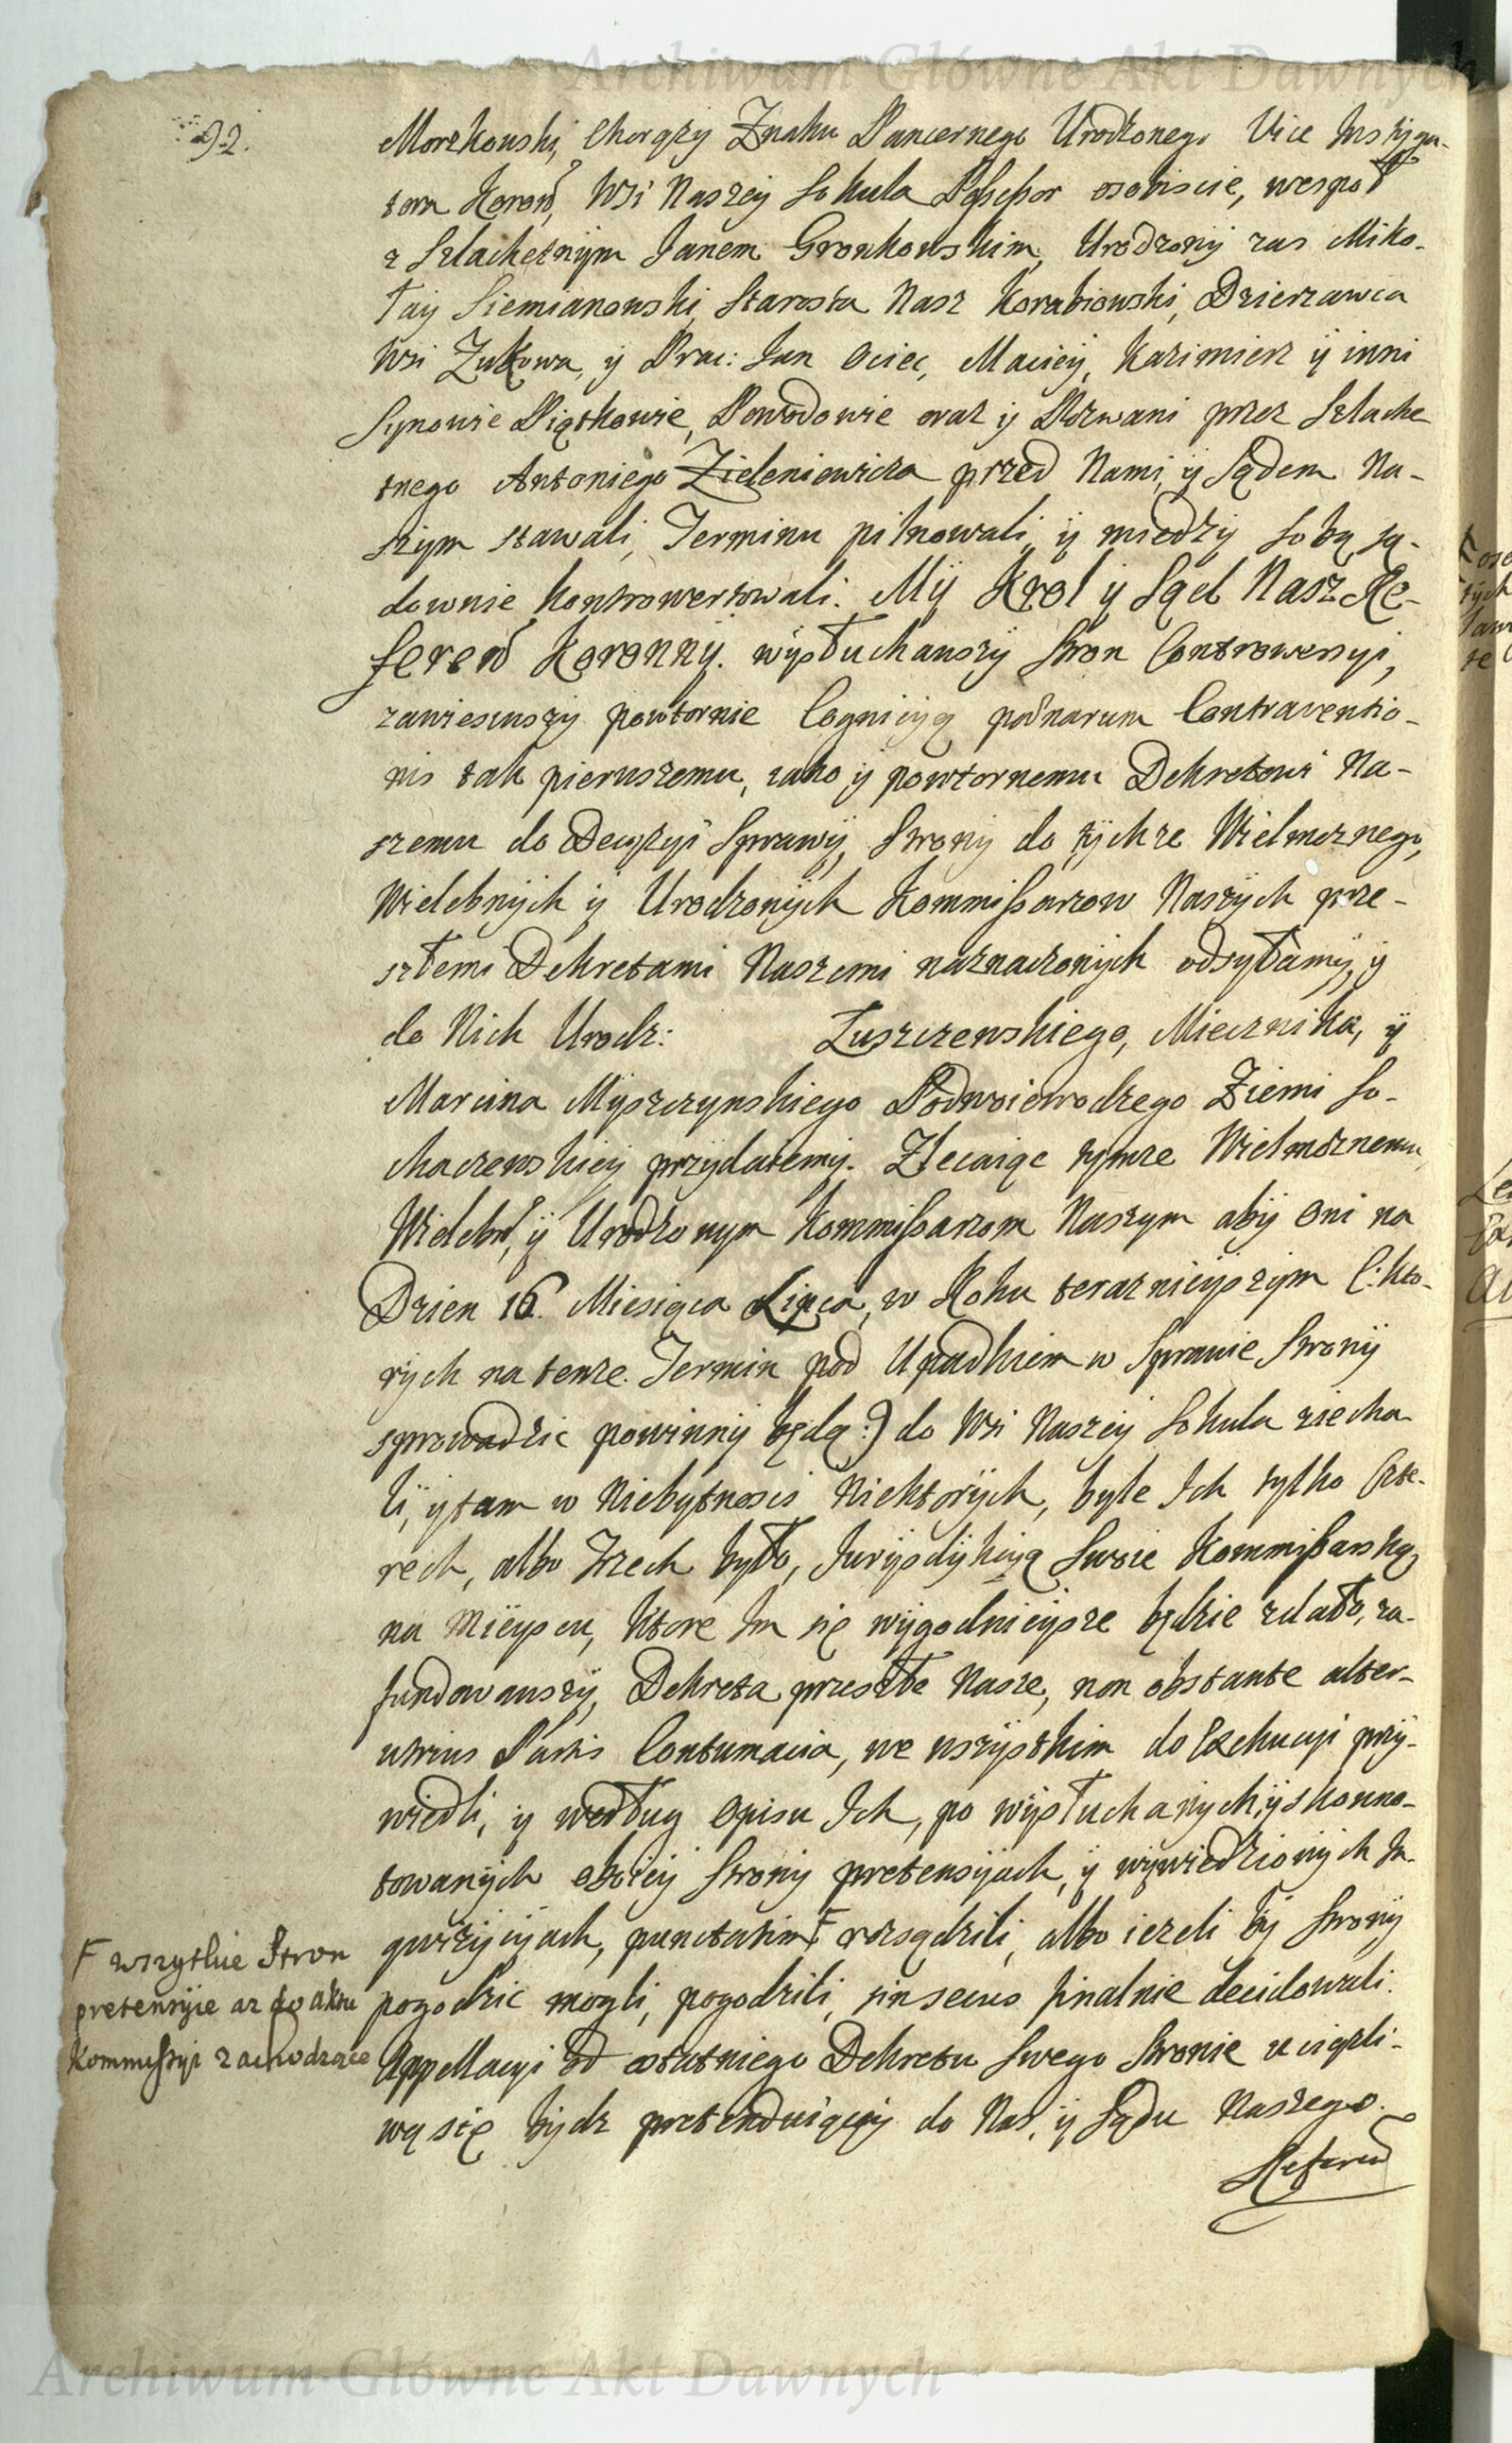 Archiwum Główne Akt Dawnych
92.
Morzkowski, Chorązy Znaku Pancernego Urodzonego Vice Instyga-
tora Koroń, Wsi Naszey Sokula Possessor osobiscie, wespoł
z Szlachetnÿm Janem Gronkowskim, Urodzonÿ zas Miko-
łaÿ Siemianowski, Starosta Nasz Korabiowski, Dzierzawca
Wsi Zukowa, ÿ Prac: Jan Ociec, Macieÿ, Kazimierz ÿ inni
Synowie Piątkowie, Powodowie oraz ÿ Pozwani przez Szlache
tnego Antoniego Zieleniewicza przed Nami, ÿ Sądem Na-
szym stawali, Terminu pilnowali, ÿ miedzÿ sobą są-
downie kontrowertowali. Mÿ Krol ÿ Sąd Nasz Re-
fereń Koronnÿ. wÿsłuchawszÿ Stron Controwersyi,
zawiesiwszÿ powtornie Cognicyą poenarum Contraventio-
nis tak pierwszemu, iako ÿ powtornemu Dekretowi Na-
szemu do Decyzyi Sprawÿ, Stronÿ do tÿchze Wielmoznego,
Wielebnÿch ÿ Urodzonÿch Kommissarzow Naszÿch prze-
szłemi Dekretami Naszemi naznaczonÿch odsyłamÿ, ÿ
do Nich Urodz: Łuszczewskiego, Miecznika, ÿ
Marcina Mÿszczynskiego Podwoiewodzego Ziemi So-
chaczewskieÿ przÿdaiemÿ. Zlecaiąc tymze Wielmoznemu,
Wielebń, ÿ Urodzonym Kommissarzom Naszym abÿ oni na
Dzien 16. Miesiąca Lipca, w Roku teraznieÿszÿm (: kto-
rÿch na tenze Termin pod Upadkiem w Sprawie Stronÿ
sprowadzic powinnÿ będą :) do Wsi Naszeÿ Sokula ziecha-
li, ÿ tam w Niebytnosci Niektorÿch, byle Ich tylko Czte-
rech, albo Trzech było, Jurÿsdÿkcÿą Swoie Kommissarską
na Mieÿscu, ktore Im się wÿgodnieÿsze będzie zdało, za-
fundowawszÿ, Dekreta przeszłe Nasze, non obstante alter-
utrius Partis Contumacia, we wszÿstkim do Exekucyi przÿ-
wiedli, ÿ według Opisu Ich, po wÿsłuchanÿch, ÿ skonno-
towanÿch oboieÿ Stronÿ pretensÿach, ÿ wÿwiedzionÿch In-
quizÿcÿach, punctatim F rozsądzili, albo iezeli bÿ Stronÿ
pogodzic mogli, pogodzili, sin secus finalnie decidowali.
Appellacyi od ostatniego Dekretu Swego Stronie uciązli-
wą się bÿdz pretenduiąceÿ do Nas, ÿ Sądu Naszego
Refereń
F wszytkie Stron
pretensyie az do aktu
Kommissyi zachodzące
Archiwum Główne Akt Dawnych